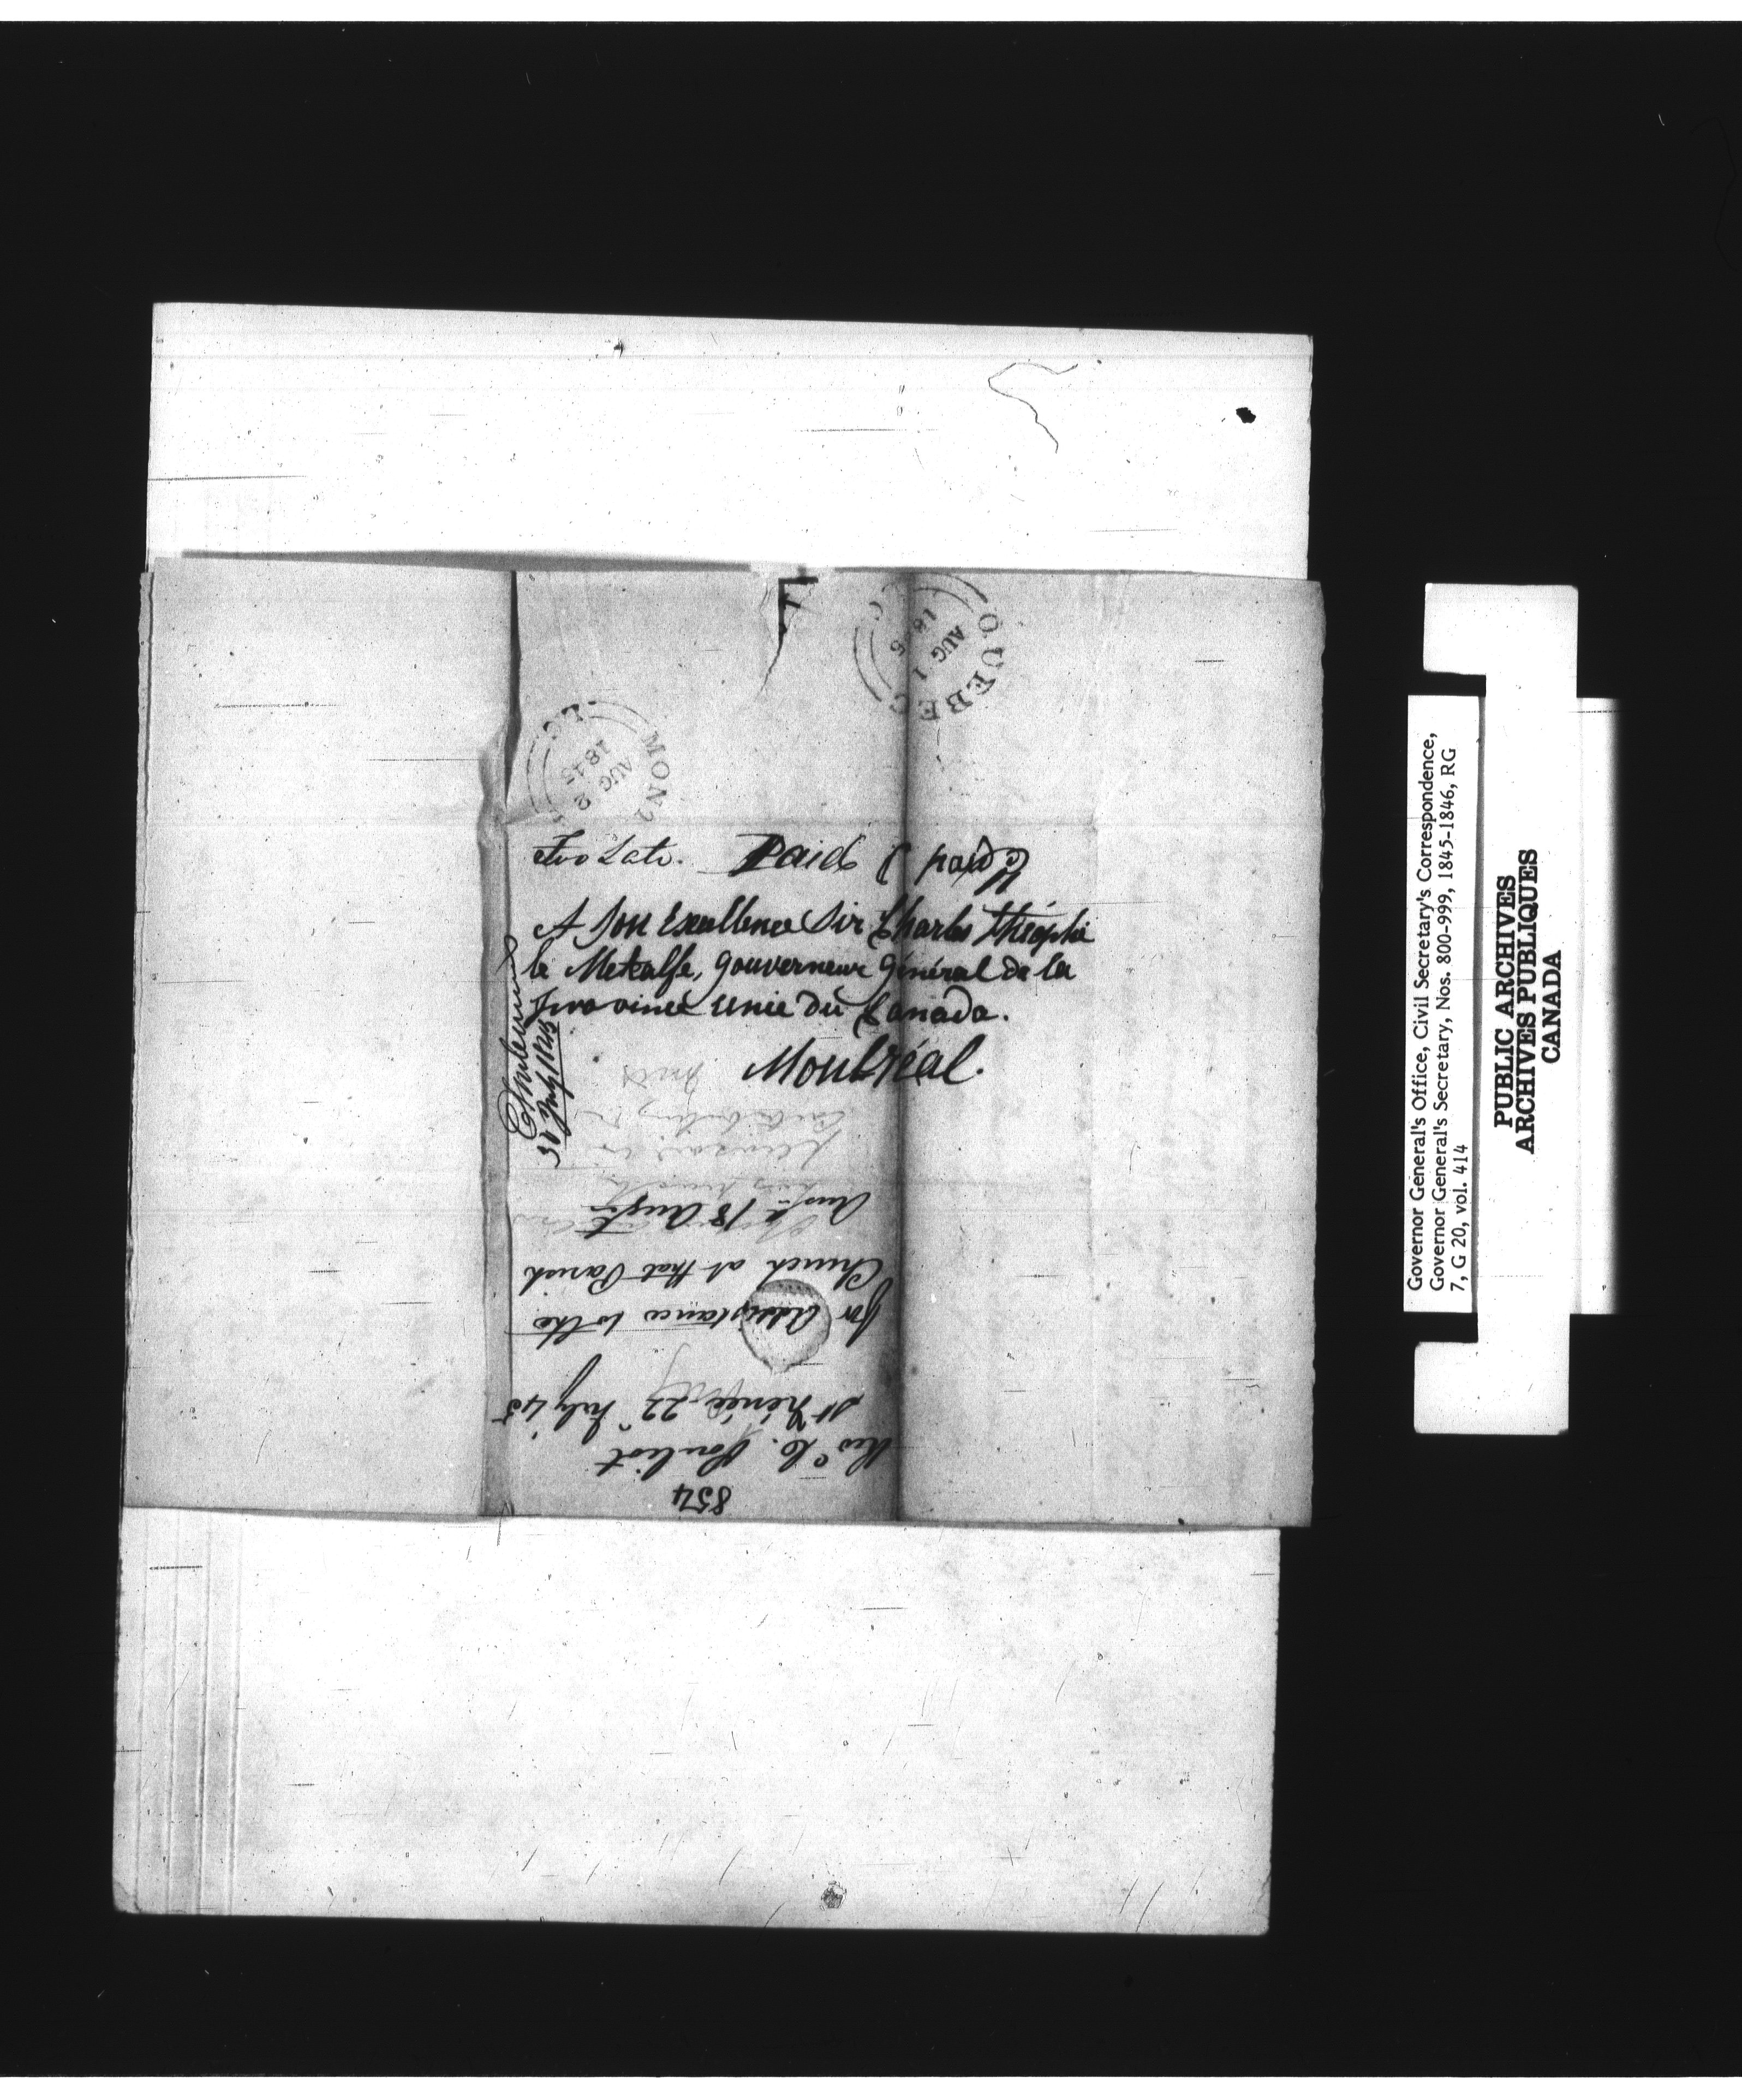 QUEBEC
AUG 1
1845
MONT
AUG 2
1845
Too Late. Paid paid
A Son Excellence Sir Charles Théophi
le Metcalfe, Gouverneur Général de la
Province Unie du Canada.
Montréal.
31 July 1845
854
Revd Ls. Pouliot
St Irénée 22 July 45
for Assistance to the
Church at that Parish
Ansd 18 Augt
Governor General's Office, Civil Secretary's Correspondence,
Governor General's Secretary, Nos. 800-999, 1845-1846, RG
7, G 20, vol. 414
PUBLIC ARCHIVES
ARCHIVES PUBLIQUES
CANADA